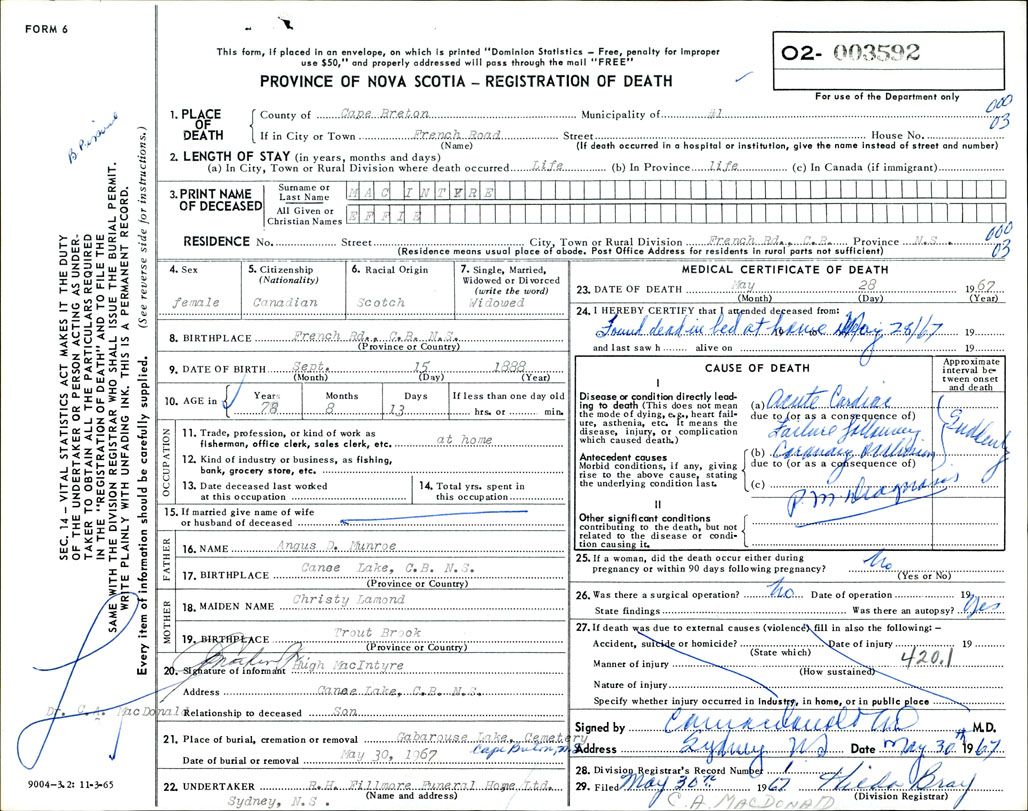 FORM 6
This form, if placed in an envelope, on which is printed "Dominion Statistics – Free, penalty for improper
use $50," and properly addressed will pass through the mail "FREE"
PROVINCE OF NOVA SCOTIA – REGISTRATION OF DEATH
02- 003592
For use of the Department only
000
03
1. PLACE OF DEATH
County of Cape Breton Municipality of #1
If in City or Town French Road Street House No.
(Name) (If death occurred in a hospital or institution, give the name instead of street and number)
2. LENGTH OF STAY (in years, months and days)
(a) In City, Town or Rural Division where death occurred Life (b) In Province life (c) In Canada (if immigrant)
3. PRINT NAME OF DECEASED
Surname or Last Name MAC INTYRE
All Given or Christian Names EFFIE
RESIDENCE No. Street City, Town or Rural Division French Rd., C.B. Province N.S.
(Residence means usual place of abode. Post Office Address for residents in rural parts not sufficient)
000
03
4. Sex
female
5. Citizenship (Nationality)
Canadian
6. Racial Origin
Scotch
7. Single, Married, Widowed or Divorced (write the word)
Widowed
8. BIRTHPLACE French Rd., C.B. N.S.
(Province or Country)
9. DATE OF BIRTH Sept. 15 1888
(Month) (Day) (Year)
10. AGE in Years 78 Months 8 Days 13 If less than one day old
hrs. or min.
OCCUPATION
11. Trade, profession, or kind of work as
fishermen, office clerk, sales clerk, etc. at home
12. Kind of industry or business, as fishing,
bank, grocery store, etc.
13. Date deceased last worked
at this occupation
14. Total yrs. spent in
this occupation
15. If married give name of wife
or husband of deceased
FATHER
16. NAME Angus D. Munroe
17. BIRTHPLACE Canoe Lake, C.B. N.S.
(Province or Country)
MOTHER
18. MAIDEN NAME Christy Lamond
19. BIRTHPLACE Trout Brook
(Province or Country)
20. Signature of informant Hugh MacIntyre
Address Canoe Lake, C.B. N.S.
Dr. C.A. MacDonald
Relationship to deceased Son
21. Place of burial, cremation or removal Gabarouse Lake, Cemetery
Cape Breton, N.S.
Date of burial or removal May 30, 1967
22. UNDERTAKER R.H. Fillmore Funeral Home Ltd.
Sydney, N.S. (Name and address)
MEDICAL CERTIFICATE OF DEATH
23. DATE OF DEATH May 28 1967
(Month) (Day) (Year)
24. I HEREBY CERTIFY that I attended deceased from:
Found dead in bed at home May 28/67 19
and last saw h alive on 19
CAUSE OF DEATH
Approximate interval between onset and death
I
Disease or condition directly leading to death (This does not mean
the mode of dying, e.g., heart failure, asthenia, etc. It means the
disease, injury, or complication
which caused death.)
(a) Acute Cardiac
due to (or as a consequence of)
Failure following
Antecedent causes
Morbid conditions, if any, giving
rise to the above cause, stating
the underlying condition last.
(b) Coronary Occlusion
due to (or as a consequence of)
(c)
Suddenly
P.M. Diagnosis
II
Other significant conditions
contributing to the death, but not
related to the disease or condition causing it.
25. If a woman, did the death occur either during
pregnancy or within 90 days following pregnancy? No
(Yes or No)
26. Was there a surgical operation? No Date of operation 19
State findings Was there an autopsy? Yes
27. If death was due to external causes (violence) fill in also the following:–
Accident, suicide or homicide? Date of injury 19
(State which)
420.1
Manner of injury
(How sustained)
Nature of injury
Specify whether injury occurred in Industry, in home, or in public place
Signed by C A MacDonald MD M.D.
Address Sydney NS Date May 30th 1967
28. Division Registrar's Record Number 1
29. Filed May 30th 1967 Hilda Bray
(Division Registrar)
C.A. MACDONALD
SEC. 14 – VITAL STATISTICS ACT MAKES IT THE DUTY
OF THE UNDERTAKER OR PERSON ACTING AS UNDERTAKER TO OBTAIN ALL THE PARTICULARS REQUIRED
IN THE "REGISTRATION OF DEATH" AND TO FILE THE
SAME WITH THE DIVISION REGISTRAR WHO SHALL ISSUE THE BURIAL PERMIT.
WRITE PLAINLY WITH UNFADING INK. THIS IS A PERMANENT RECORD.
Every item of information should be carefully supplied. (See reverse side for instructions.)
9004-3.2: 11-3-65